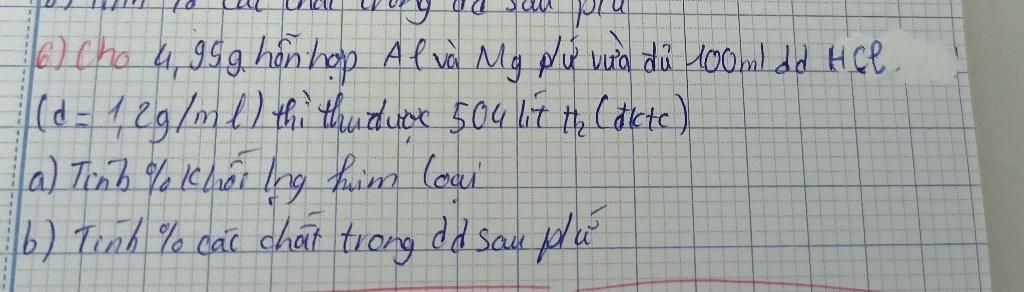 6) Cho 4,95g hỗn hợp Al và Mg pứ vừa đủ 100ml dd HCl
(d = 1,2g/ml) thì thu được 504 lít H₂ (đktc)
a) Tính % khối lg kim loại
b) Tính % các chất trong dd sau pứ